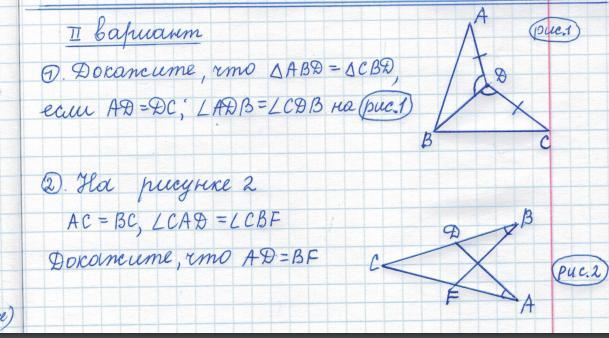 II вариант
рис.1
A
①. Докажите, что △ABD = △CBD,
D
если AD = DC; ∠ADB = ∠CDB на рис.1
B
C
②. На рисунке 2
AC = BC, ∠CAD = ∠CBF
B
D
Докажите, что AD = BF
C
рис.2
F
A